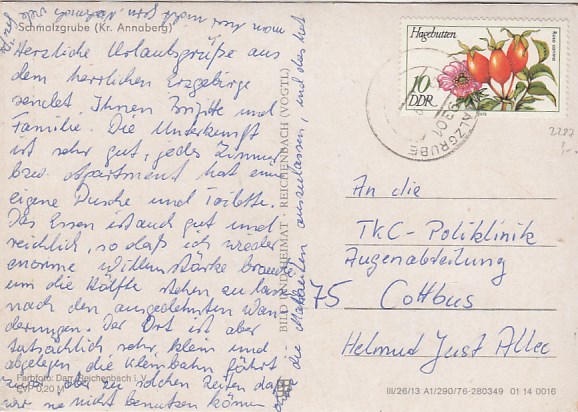 Schmalzgrube (Kr. Annaberg)
Herzliche Urlaubsgrüße aus
dem herrlichen Erzgebirge
sendet Ihnen Brigitte und
Familie. Die Unterkunft
ist sehr gut, jedes Zimmer
bzw. Apartment hat eine
eigene Dusche und Toilette.
Das Essen ist auch gut und
reichlich, so daß ich wieder
enorme Willensstärke brauche
um die Hälfte stehen zu lassen
nach den ausgedehnten Wan-
derungen. Der Ort ist aber
tatsächlich sehr klein und
abgelegen, die Kleinbahn fährt
zwar, aber zu solchen Zeiten, daß
wir sie nicht benutzen können
die Mahlzeiten auszulassen, und das tut
man
BILD UND HEIMAT · REICHENBACH (VOGTL)
Farbfoto: Darr, Reichenbach i. V.
EVP 0,20 M
Hagebutten
Rosa canina
10
DDR
9301
SCHMALZGRUBE
2287
An die
TKC-Poliklinik
Augenabteilung
75 Cottbus
Helmud Just Allee
III/26/13 A1/290/76-280349 01 14 0016